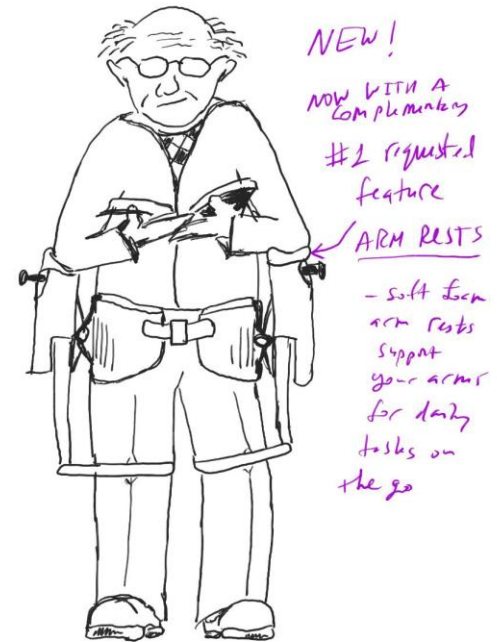 NEW!
NOW WITH A
COMPlementary
#1 requested
feature
ARM RESTS
- soft foam
arm rests
support
your arms
for daily
tasks on
the go